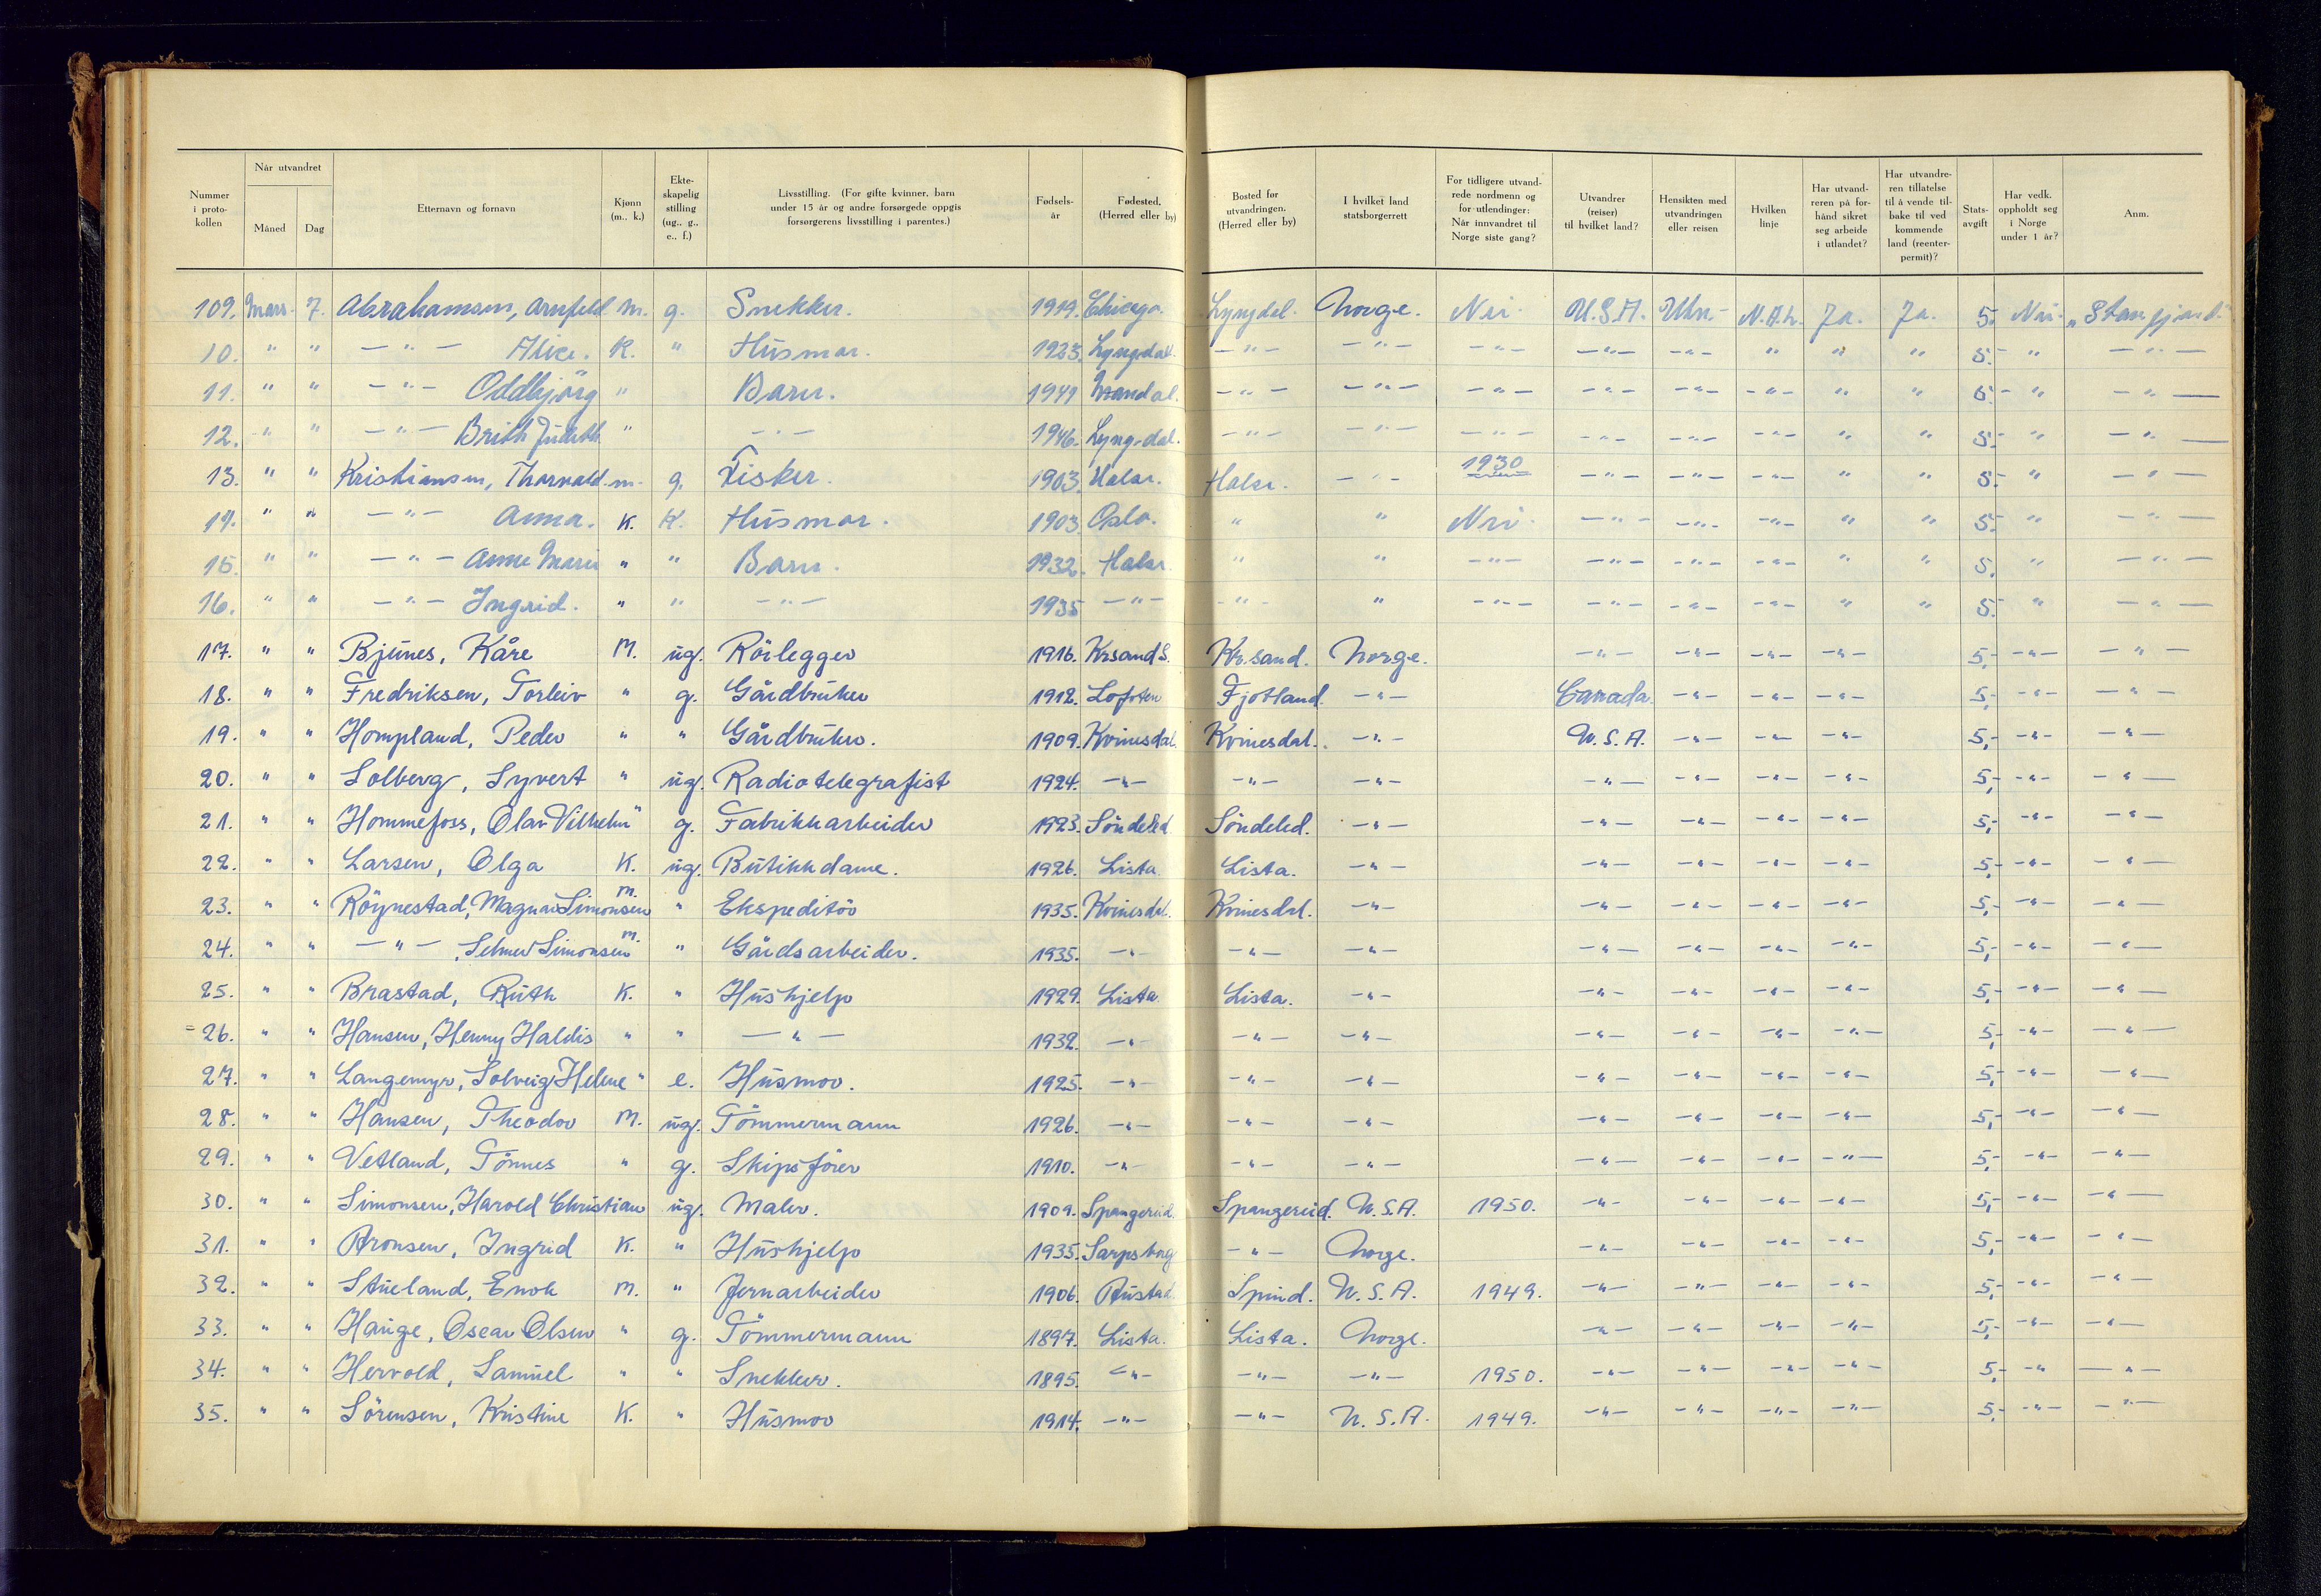 Nummer i proto-kollen | Når utvandret Måned | Dag | Etternavn og fornavn | Kjønn (m., k.) | Ekte-skapelig stilling (ug., g., e., f.) | Livsstilling. (For gifte kvinner, barn under 15 år og andre forsørgede oppgis forsørgerens livsstilling i parentes.) | Fødsels-år | Fødested. (Herred eller by) | Bosted før utvandringen. (Herred eller by) | I hvilket land statsborgerrett | For tidligere utvand-rede nordmenn og for utlendinger: Når innvandret til Norge siste gang? | Utvandrer (reiser) til hvilket land? | Hensikten med utvandringen eller reisen | Hvilken linje | Har utvand-reren på for-hånd sikret seg arbeide i utlandet? | Har utvandre-ren tillatelse til å vende til-bake til ved kommende land (reenter-permit)? | Stats-avgift | Har vedk. oppholdt seg i Norge under 1 år? | Anm.
109. Mars. 7. Abrahamsen, Arnfeld m. g. Snekker. 1919. Chicago. Lyngdal. Norge. Nei. U.S.A. Utv.- N.A.L. Ja. Ja. 5.- Nei. "Stavgjord."
10. " " -"- Alice. K. " Husmor. 1923. Lyngdal. -"- -"- -"- -"- -"- " " " 5.- " -"-
11. " " -"- Oddbjörg " Barn. 1941 Mandal. -"- -"- -"- -"- -"- -"- " " 5.- " -"-
12. " " -"- Brith Judith " -"- 1946. Lyngdal. -"- -"- -"- -"- -"- -"- " " 5.- " -"-
13. " " Kristiansen, Thorvald. m. g. Fisker. 1903. Halse. Halse. -"- 1930 -"- -"- -"- " " 5.- " -"-
14. " " -"- Anna. K. K. Husmor. 1903. Oslo. " " Nei. -"- -"- -"- " " 5.- " -"-
15. " " -"- Anne Marie " " Barn. 1932. Halse. " " -"- -"- -"- -"- " " 5. " -"-
16. " " -"- Ingrid. " " -"- 1935 -"- -"- " -"- -"- -"- -"- " " 5.- " -"-
17. " " Bjunes, Kåre M. ug. Rörlegger 1916. Krsand S. Kr.sand. Norge. -"- -"- -"- -"- 5,- -"- -"-
18. " " Fredriksen, Torleiv " g. Gårdbruker 1912. Lofoten Fjotland. -"- Canada. -"- -"- -"- 5,- -"- -"-
19. " " Hompland, Peder " " Gårdbruker. 1909. Kvinesdal. Kvinesdal. -"- U.S.A. -"- -"- -"- 5,- -"- -"-
20. " " Solberg, Syvert " ug. Radiotelegrafist 1924. -"- -"- -"- -"- -"- -"- -"- 5,- -"- -"-
21. " " Hommefoss, Olav Vilhelm " g. Fabrikkarbeider 1923. Söndeled Söndeled. -"- -"- -"- -"- -"- 5,- -"- -"-
22. " " Larsen, Olga K. ug. Butikkdame. 1926. Lista. Lista. -"- -"- -"- -"- -"- 5,- -"- -"-
23. " " Röynestad, Magnar Simonsen m. " Ekspeditör 1935. Kvinesdal. Kvinesdal. -"- -"- -"- -"- -"- 5,- -"- -"-
24. " " -"-, Selmer Simonsen m. " Gårdsarbeider. 1935. -"- -"- -"- -"- -"- -"- -"- 5,- -"- -"-
25. " " Brastad, Ruth K. " Hushjelp 1929. Lista. Lista. -"- -"- -"- -"- -"- 5,- -"- -"-
=26. " " Hansen, Henny Haldis " " -"- 1932. -"- -"- -"- -"- -"- -"- -"- 5,- -"- -"-
27. " " Langemyr, Solveig Helene " e. Husmor. 1925. -"- -"- -"- -"- -"- -"- -"- 5,- -"- -"-
28. " " Hansen, Theodor M. ug. Tömmermann 1926. -"- -"- -"- -"- -"- -"- -"- 5,- -"- -"-
29. " " Vetland, Tönnes " g. Skipsförer 1910. -"- -"- -"- -"- -"- -"- -"- 5,- -"- -"-
30. " " Simonsen, Harold Christian ug. Maler. 1909. Spangereid. Spangereid. U.S.A. 1950. -"- -"- -"- -"- 5,- -"- -"-
31. " " Aronsen, Ingrid K. " Hushjelp 1935. Sarpsborg -"- Norge. -"- -"- -"- -"- 5,- -"- -"-
32. " " Stueland, Enok M. " Jernarbeider 1906. Austad. Spind. U.S.A. 1949. -"- -"- -"- -"- 5,- -"- -"-
33. " " Hauge, Oscar Olsen " g. Tömmermann 1897. Lista. Lista. Norge. -"- -"- -"- -"- 5,- -"- -"-
34. " " Hervold, Samuel " " Snekker. 1895. -"- -"- -"- 1950. -"- -"- -"- -"- 5,- -"- -"-
35. " " Sörensen, Kristine K. " Husmor 1914. -"- -"- U.S.A. 1949. -"- -"- -"- -"- 5,- -"- -"-